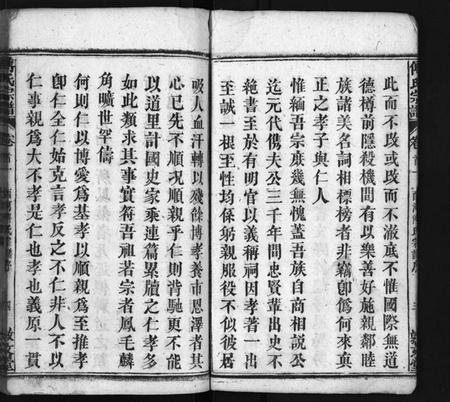 此而不改或改而不澈底不惟國際無道
德樽前隱殺機間有以樂善好施親鄰睦
族諸美名詞相標榜者非竊卽僞何來真
正之孝子與仁人
惟緬吾宗庶幾無愧蓋吾族自商相說公
迄元代儁夫公三千年間忠賢輩出史不
絶書至於有明官以義稱祠因孝著一出
至誠一根至性均係躬親服役不似彼居
吸人血汗轉以殘餘博孝養市恩澤者其
心已先不順況順親乎仁則背馳更不能
以道里計國史家乘連篇累牘之仁孝多
如此類求其事實符吾祖若宗者鳳毛麟
角曠世罕儔
何則仁以博愛爲基孝以順親爲至推孝
卽仁全仁始克言孝反之不仁非人不以
仁事親爲大不孝是仁也孝也義原一貫
傅氏宗譜
卷首